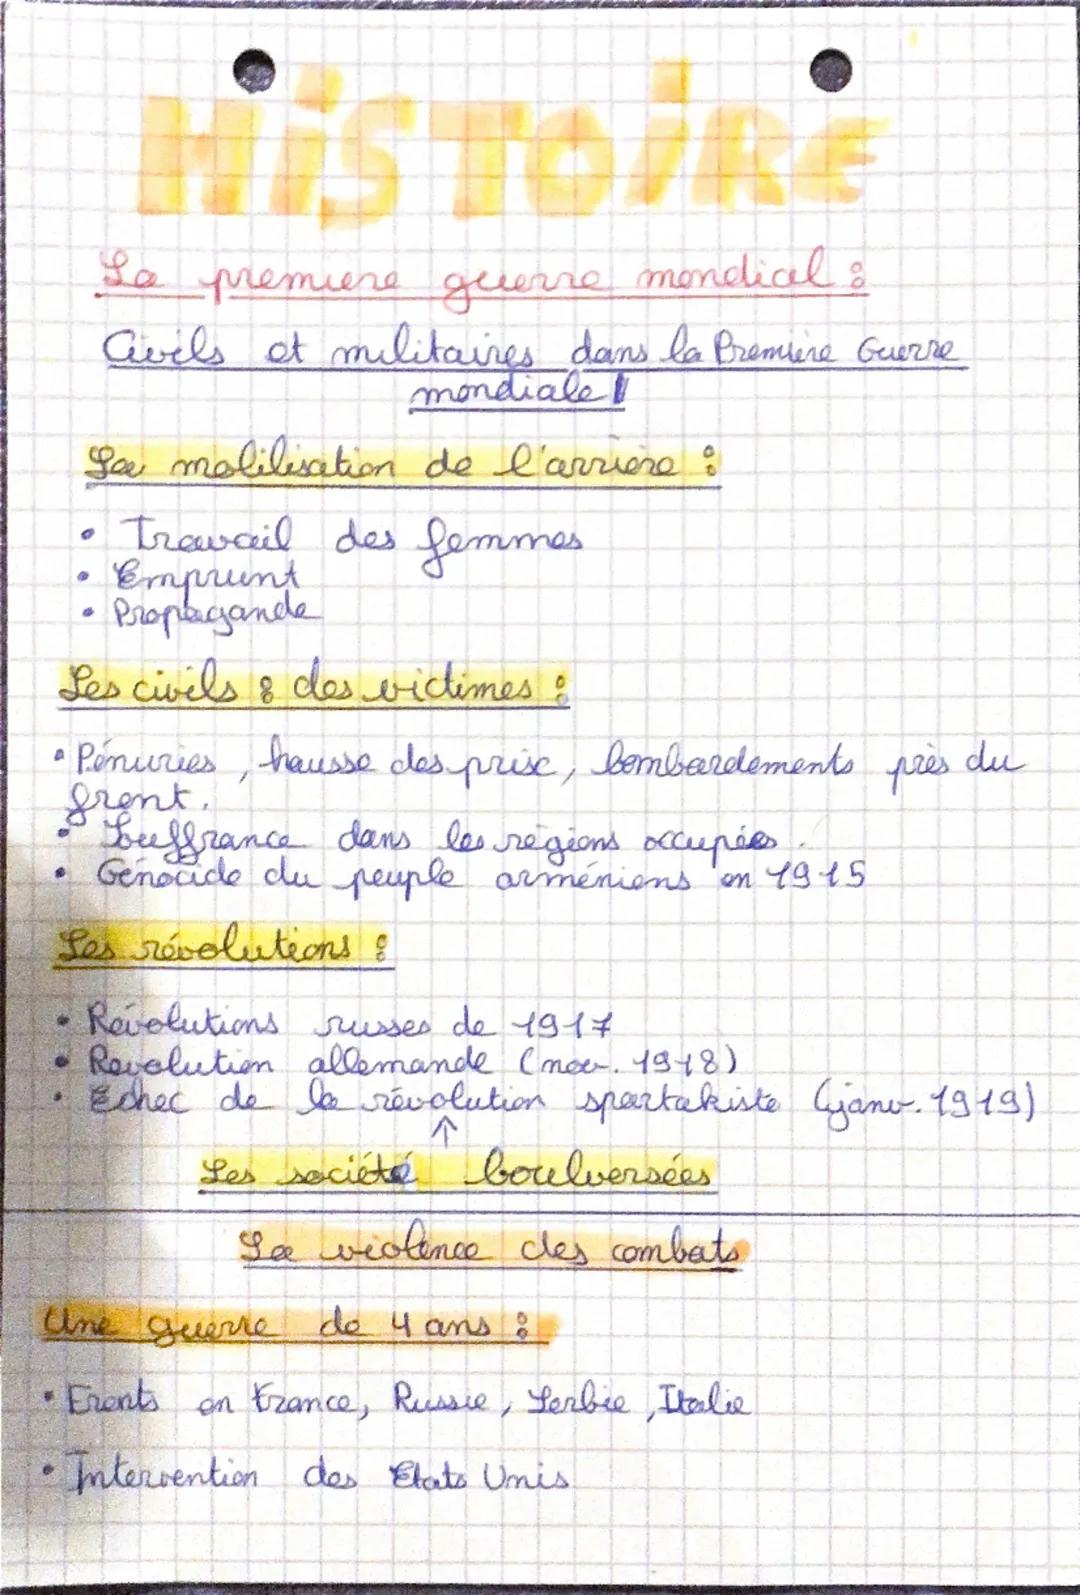 HiSTOiRE
La premiere guerre mondial :
Civils et militaires dans la Première Guerre
mondiale
La mobilisation de l'arrière :
• Travail des femmes
• Emprunt
• Propagande
Les civils : des victimes :
• Pénuries, hausse des prix, bombardements près du
front.
• Souffrance dans les régions occupées.
• Génocide du peuple arméniens en 1915
Les révolutions :
• Révolutions russes de 1917
• Revolution allemande (nov. 1918)
• Echec de la révolution spartakiste (janv. 1919)
↑
Les société boulversées
La violence des combats
Une guerre de 4 ans :
• Fronts en France, Russie, Serbie, Italie
• Intervention des Etats Unis